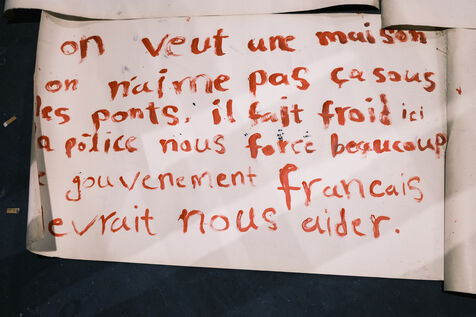 on veut une maison
on n'aime pas ça sous
les ponts. il fait froid ici
a police nous force beaucoup
gouvenement francais
evrait nous aider.